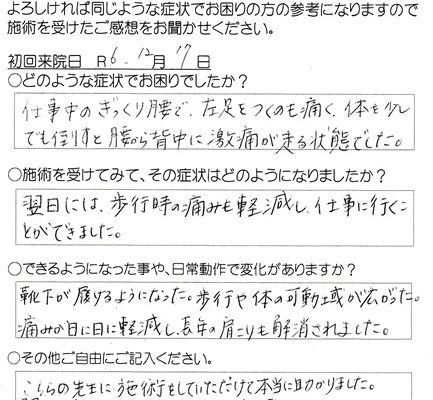 よろしければ同じような症状でお困りの方の参考になりますので
施術を受けたご感想をお聞かせください。
初回来院日 R6.12月17日
○どのような症状でお困りでしたか？
仕事中のぎっくり腰で、左足をつくのも痛く、体を少し
でも倒すと腰から背中に激痛が走る状態でした。
○施術を受けてみて、その症状はどのようになりましたか？
翌日には、歩行時の痛みも軽減し、仕事に行くこ
とができました。
○できるようになった事や、日常動作で変化がありますか？
靴下が履けるようになった。歩行や体の可動域が広がった。
痛みが日に日に軽減し、長年の肩こりも解消されました。
○その他ご自由にご記入ください。
こちらの先生に施術をしていただけて本当に助かりました。